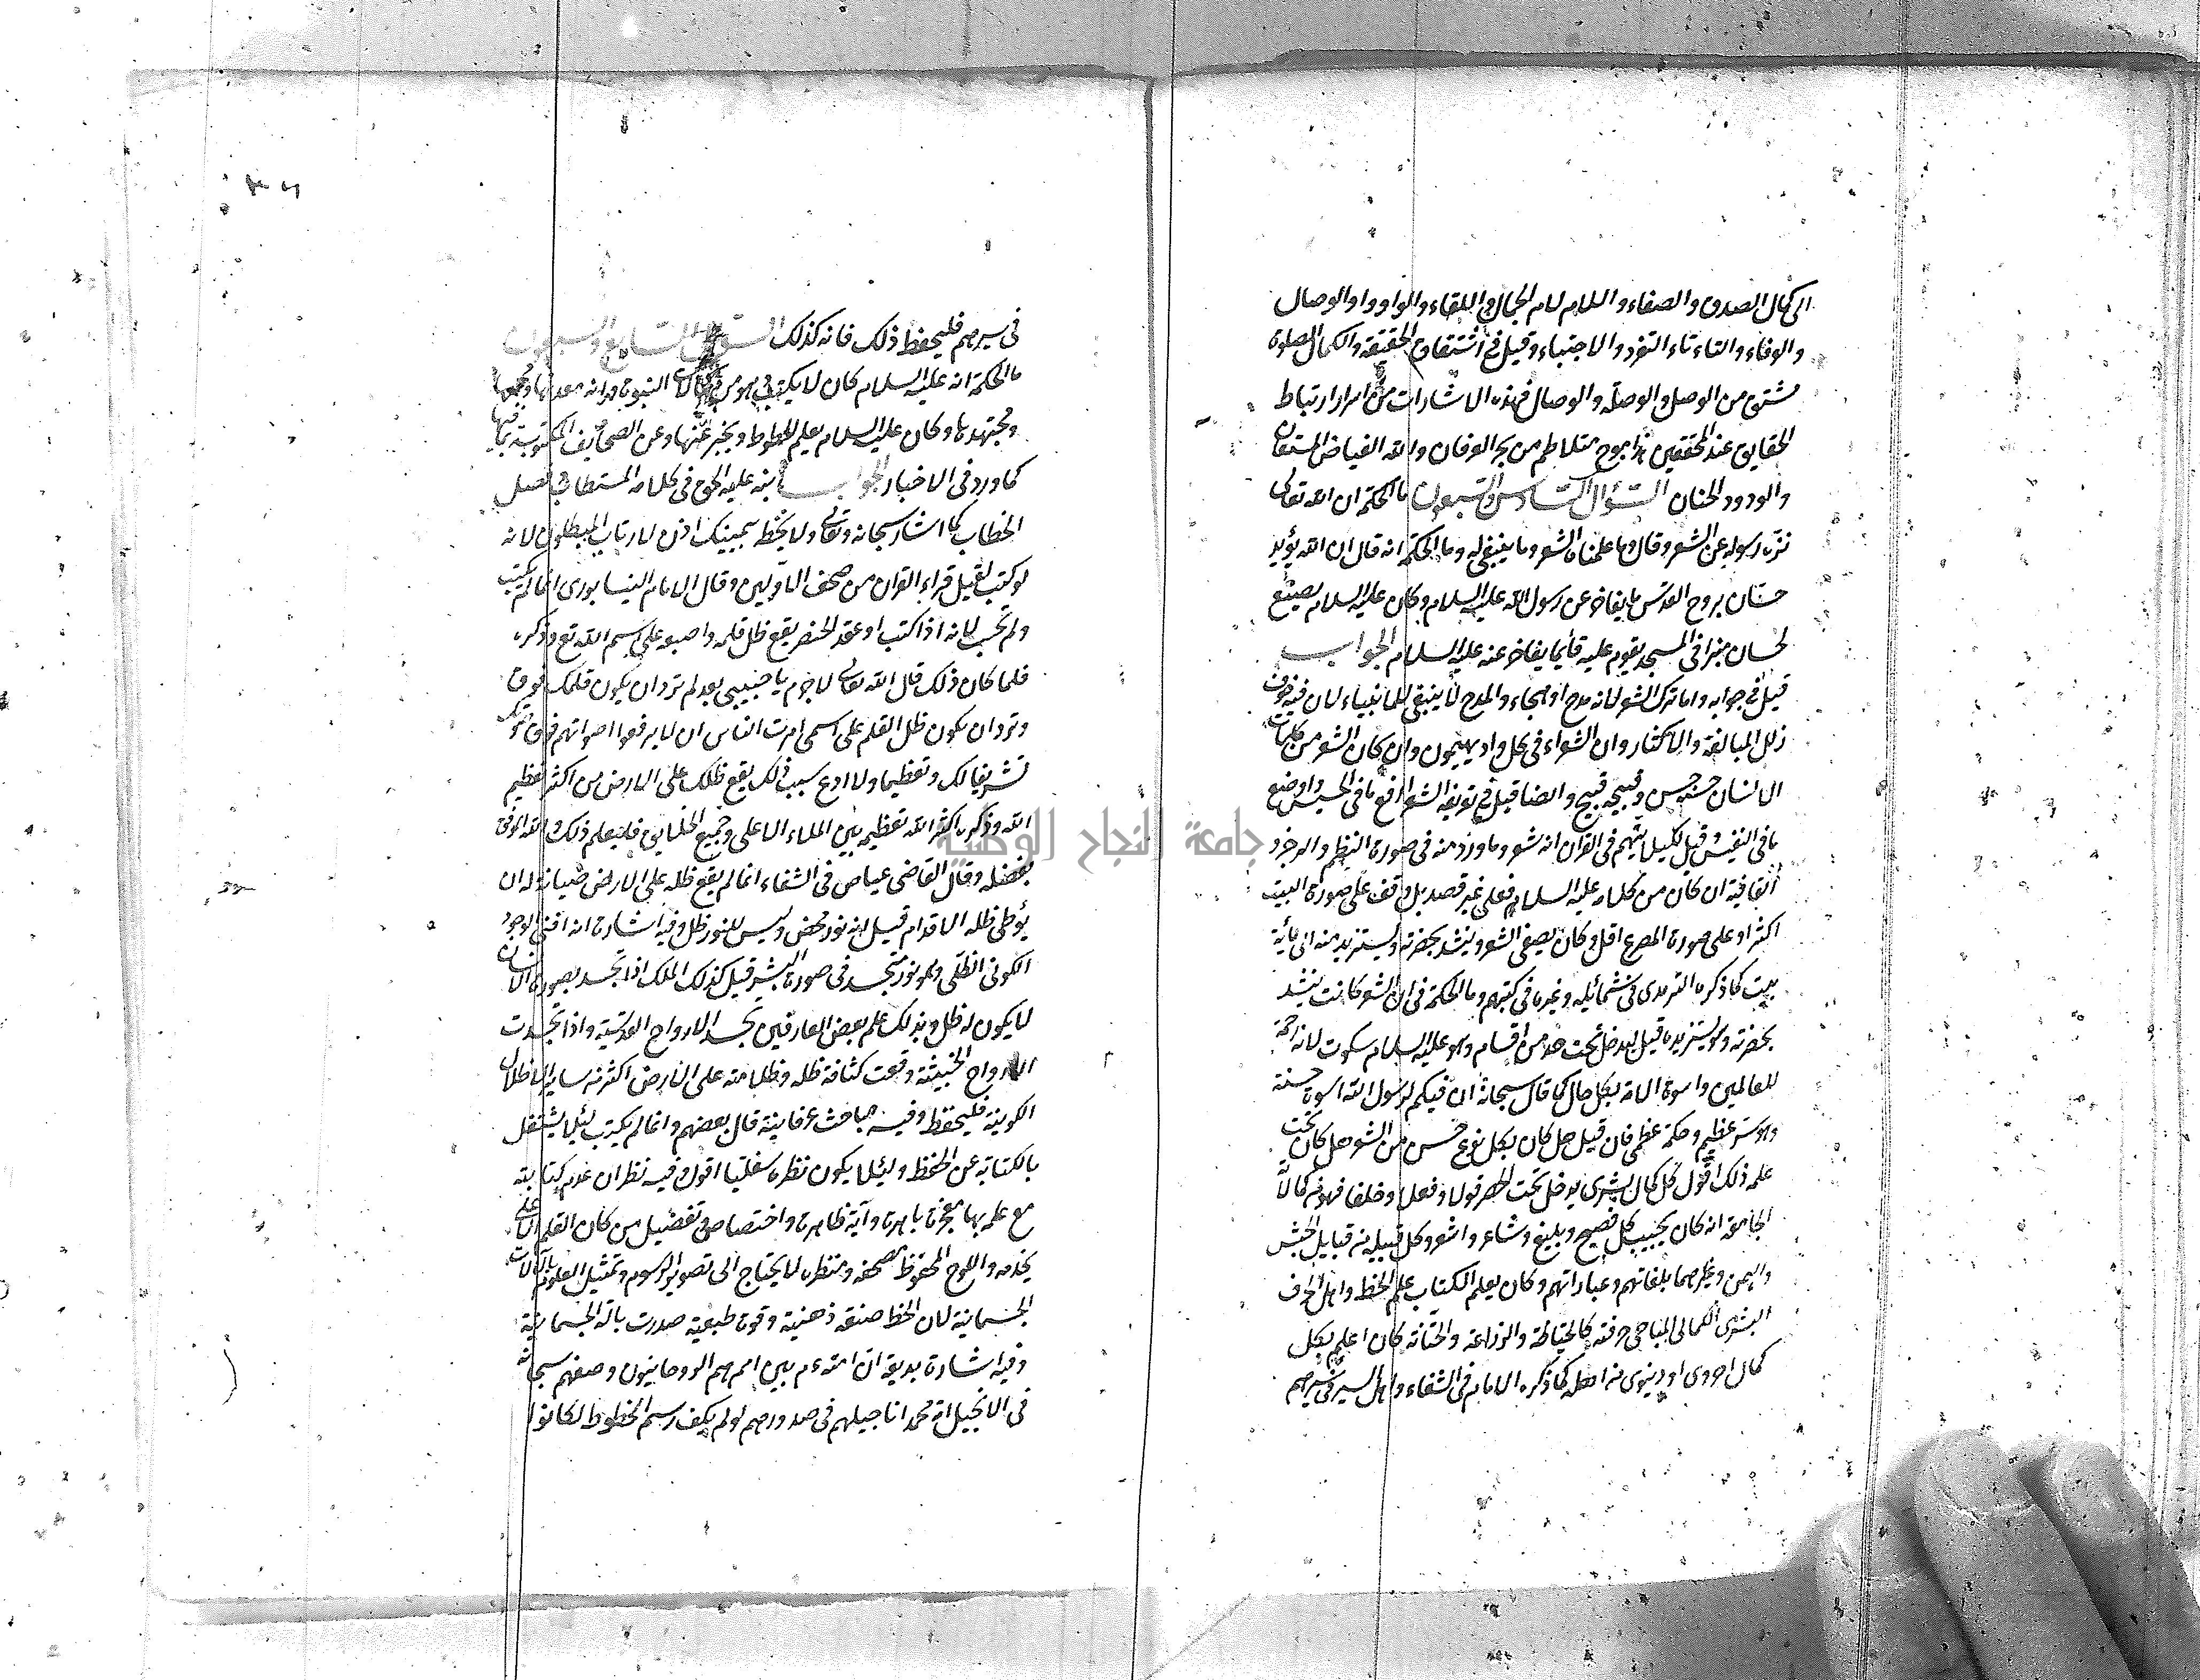 الى كمال الصدق والصفاء واللام لام الجمال واللقاء والواو واو الوصال
والوفاء والتاء تاء التفرد والاجتباء وقيل في اشتقاق الحقيقة والكمال الصلوة
مشتق من الوصل والوصلة والوصال فهذه الاشارات من اسرار ارتباط
الحقايق عند المحققين هذا موج متلاطم من بحر العرفان والله الفياض المستعان
والودود الحنان السؤال السادس والسبعون ما الحكمة ان الله تعالى
نزه رسوله عن الشعر وقال وما علمناه الشعر وما ينبغي له وما الحكمة انه قال ان الله يؤيد
حسّان بروح القدس ما يفاخر عن رسول الله عليه السلام وكان عليه السلام يضع
لحسان منبرا في المسجد يقوم عليه قائما يفاخر عنه عليه السلام الجواب
قيل في جوابه واما ترك الشعر لانه مدح او هجاء والمدح لا ينبغي للانبياء لان فيه خوف
زلل المبالغة والاكثار وان الشعراء في كل واد يهيمون وان كان الشعر من كلمات
الانسان حسنه حسن وقبيحه قبيح وايضا قيل في تعريف الشعر ارفع ما في الخسيس واوضع
ما في النفيس وقيل لكيلا يتهم في القرآن انه شعر وما ورد منه في صورة النظم والرجز و
القافية ان كان من كلامه عليه السلام فعلى غير قصد بل وقف على صورة البيت
اكثر او على صورة المصرع اقل وكان يصغى الشعر وينشد بحضرته ويستزيد منه الى مائة
بيت كما ذكره الترمذى في شمائله وغيره في كتبهم وما الحكمة في ان الشعر كانت ينشد
بحضرته وهو يستزيده قيل ليدخل تحت مدحه اقسام وهو عليه السلام سكوت لانه رحمة
للعالمين واسوة الامة بكل حال كما قال سبحانه ان فيكم لرسول الله اسوة حسنة
وهو سر عظيم وحكمة عظمى فان قيل هل كان بكل نوع حسن من الشعر هل كان تحت
علمه ذلك اقول كل كمال بشرى يدخل تحت الحصر قولا وفعلا وخلقا فهو من كمالاته
الجامعة انه كان يجيب كل فصيح وبليغ وشاعر واشعر وكل قبيلة من قبايل الحبش
واليمن وغيرهما بلغاتهم وعباراتهم وكان يعلم الكتاب علم الخط واهل الحرف
البشرى الكمالى المباحى حرفته كالخياطة والزراعة والختانة كان اعلم بكل
كمال اخروى او دنيوى من اهله كما ذكره الامام في الشفاء واهل السير في سيرهم
في سيرهم فليحفظ ذلك فانه كذلك السؤال السابع والسبعون
ما الحكمة انه عليه السلام كان لا يكتب وهو من كمالات النبوة وانه معدنها ومجمعها
ومجتهدها وكان عليه السلام يعلم الخطوط ويخبر عنها وعن الصحايف المكتوبة بما فيها
كما ورد في الاخبار الجواب نبه عليه الحق في كلامه المستطاب في فصل
الخطاب كما اشار سبحانه وتعالى ولا تخطه بيمينك اذن لارتاب المبطلون لانه
لو كتب لقيل قراء القرآن من صحف الاولين وقال الامام النيسابورى انما لم يكتب
ولم تحسب لانه اذا كتب او عقد الخنصر يقع ظل قلمه واصبعه على اسم الله تع وذكره
فلما كان ذلك قال الله تعالى لا جرم يا حبيبى بعد لم ترد ان يكون قلمك فوق اسمى
وترد ان يكون ظل القلم على اسمى امرت الناس ان لا يرفعوا اصواتهم فوق صوتك
تشريفا لك وتعظيما ولا ادع بسبب ذلك يقع ظلك على الارض من اكثر تعظيم
الله وذكره اكثر الله تعظيمه بين الملاء الاعلى وجميع الخلايق فليعلم ذلك والله الموفق
بفضله وقال القاضى عياض في الشفاء انما لم يقع ظله على الارض صيانة له ان
يوطئ ظله الاقدام قيل انه نور محض وليس للنور ظل وفيه اشارة انه افنى الوجود
الكونى الظلى وهو نور متجسد في صورة البشر قيل كذلك الملك اذا تجسد بصورة الانسان
لا يكون له ظل وبذلك علم بعض العارفين تجسد الارواح القدسية واذا تجسدت
الارواح الخبيثة وقعت كثافة ظله وظلامته على الارض اكثر من ساير الاظلال
الكونية فليحفظ وفيه مباحث عرفانية قال بعضهم وانما لم يكتب لئلا يشتغل
بالكتابة عن الحفظ ولئلا يكون نظره سفليا اقول وفيه نظر ان عدم كتابته
مع علمه بها معجزة باهرة وآية ظاهرة واختصاص وتفضيل من كان القلم الاعلى
يخدمه واللوح المحفوظ مصحفه ومنظره لا يحتاج الى تصوير الرسوم وتمثيل العلوم بالآلات
الجسمانية لان الخط صنعة ذهنية وقوة طبعية صدرت بآلة الجسمانية
وفيه اشارة بديعة ان امته ءم بين امم هم الروحانيون وصفهم سبحانه
في الانجيل امة محمد اناجيلهم في صدورهم لو لم يكف رسم الخطوط لكانوا
جامعة النجاح الوطنية